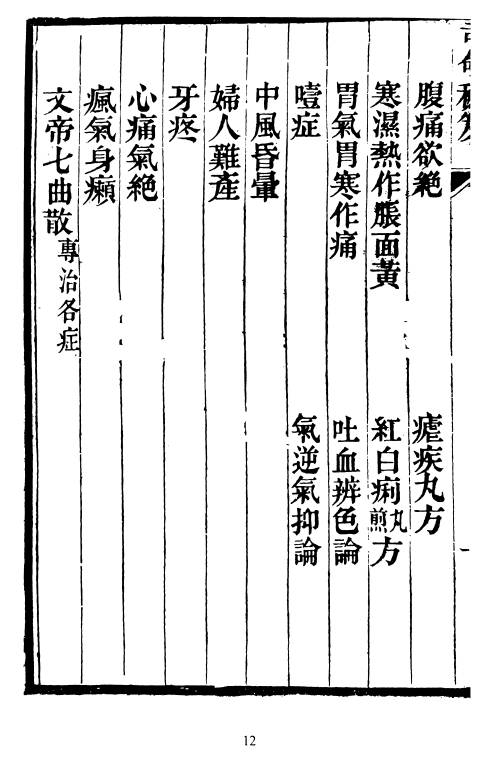 腹痛欲絕　瘧疾丸方
寒濕熱作脹面黃　紅白痢丸煎方
胃氣胃寒作痛　吐血辨色論
噎症　氣逆氣抑論
中風昏暈
婦人難產
牙疼
心痛氣絕
瘋氣身癩
文帝七曲散專治各症
12